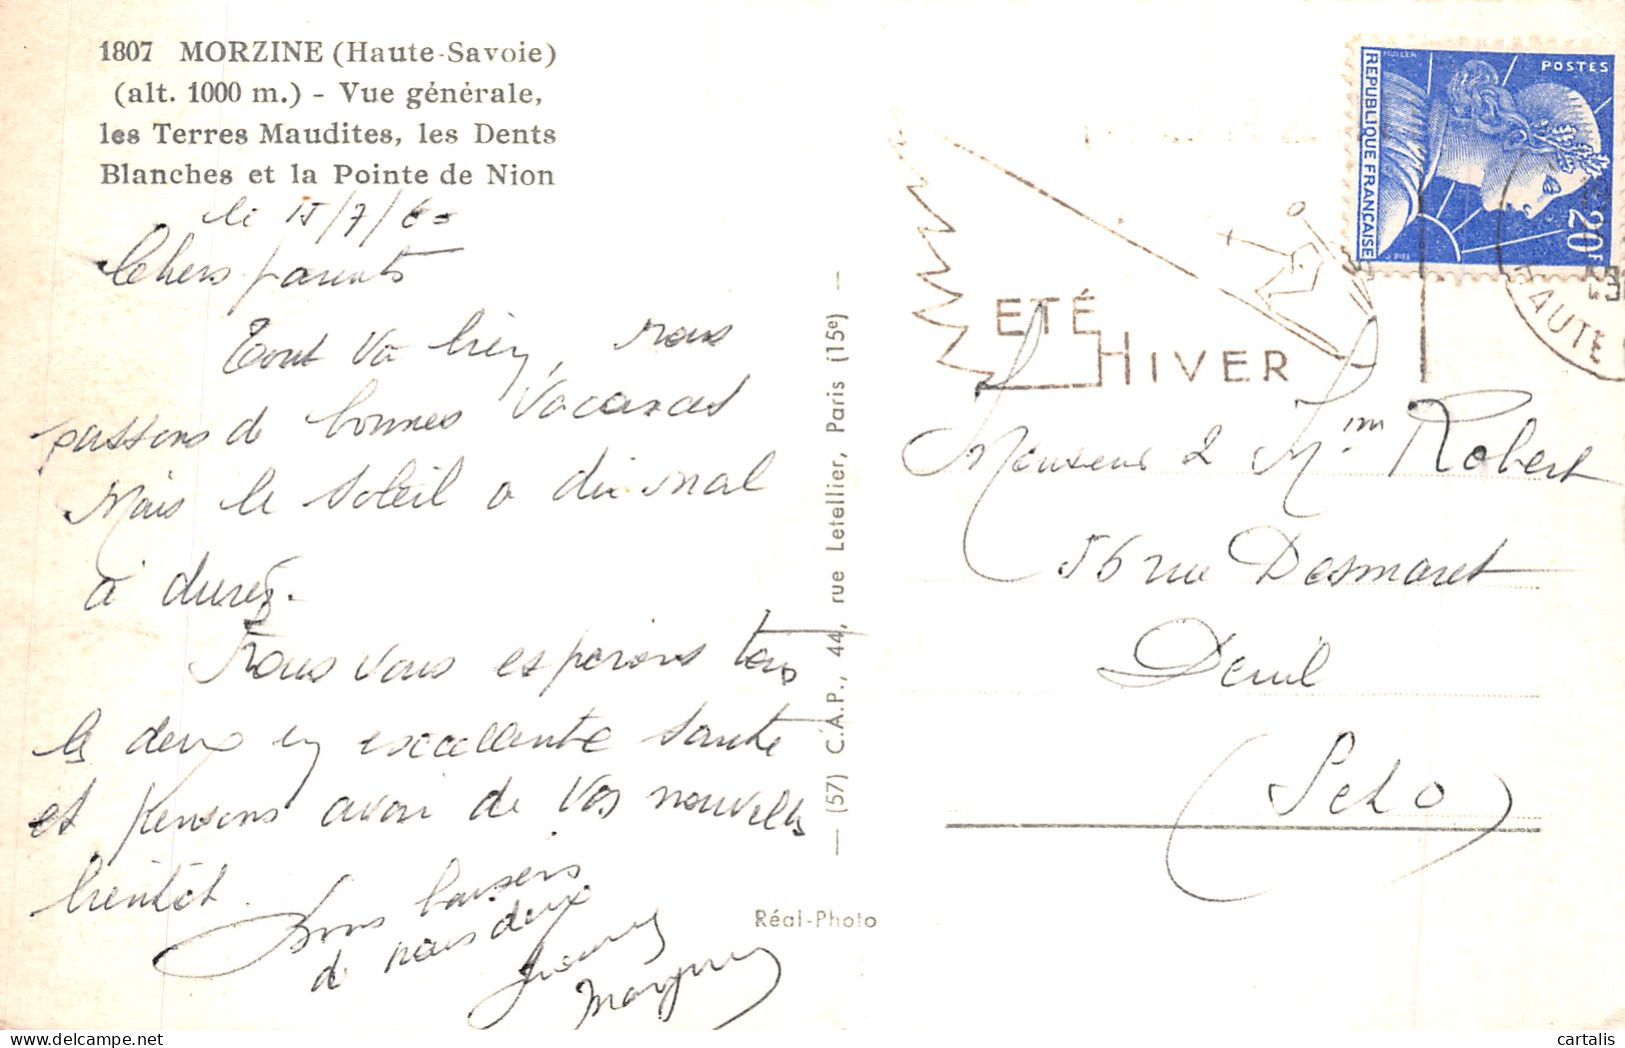 1807 MORZINE (Haute-Savoie)
(alt. 1000 m.) - Vue générale,
les Terres Maudites, les Dents
Blanches et la Pointe de Nion
le 15/7/60
Chers parents
Tout va bien, nous
passons de bonnes vacances
Mais le soleil a du mal
a durer.
Nous vous esperons tous
les deux en excellente santé
et pensons avoir de vos nouvelles
bientôt.
Bons baisers
de nous deux
— (57) C.A.P., 44, rue Letellier, Paris (15e) —
Réal-Photo
ETÉ
HIVER
HAUTE
MULLER
POSTES
REPUBLIQUE FRANÇAISE
20F
J. PIEL
Monsieur & Mm Robert
56 rue Desmaret
Deuil
(S et O)
cartalis